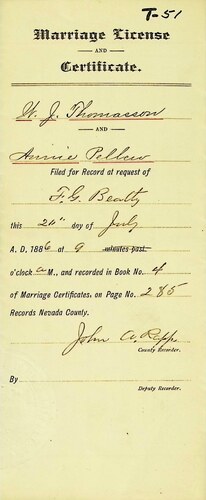 T-51
Marriage License
AND
Certificate.
W. J. Thomasson
AND
Annie Pellew
Filed for Record at request of
F. G. Beatty
this 24" day of July
A. D. 1886 at 9 minutes past
o'clock a M., and recorded in Book No. 4
of Marriage Certificates, on Page No. 285
Records Nevada County.
John A. Rapp
County Recorder.
By
Deputy Recorder.